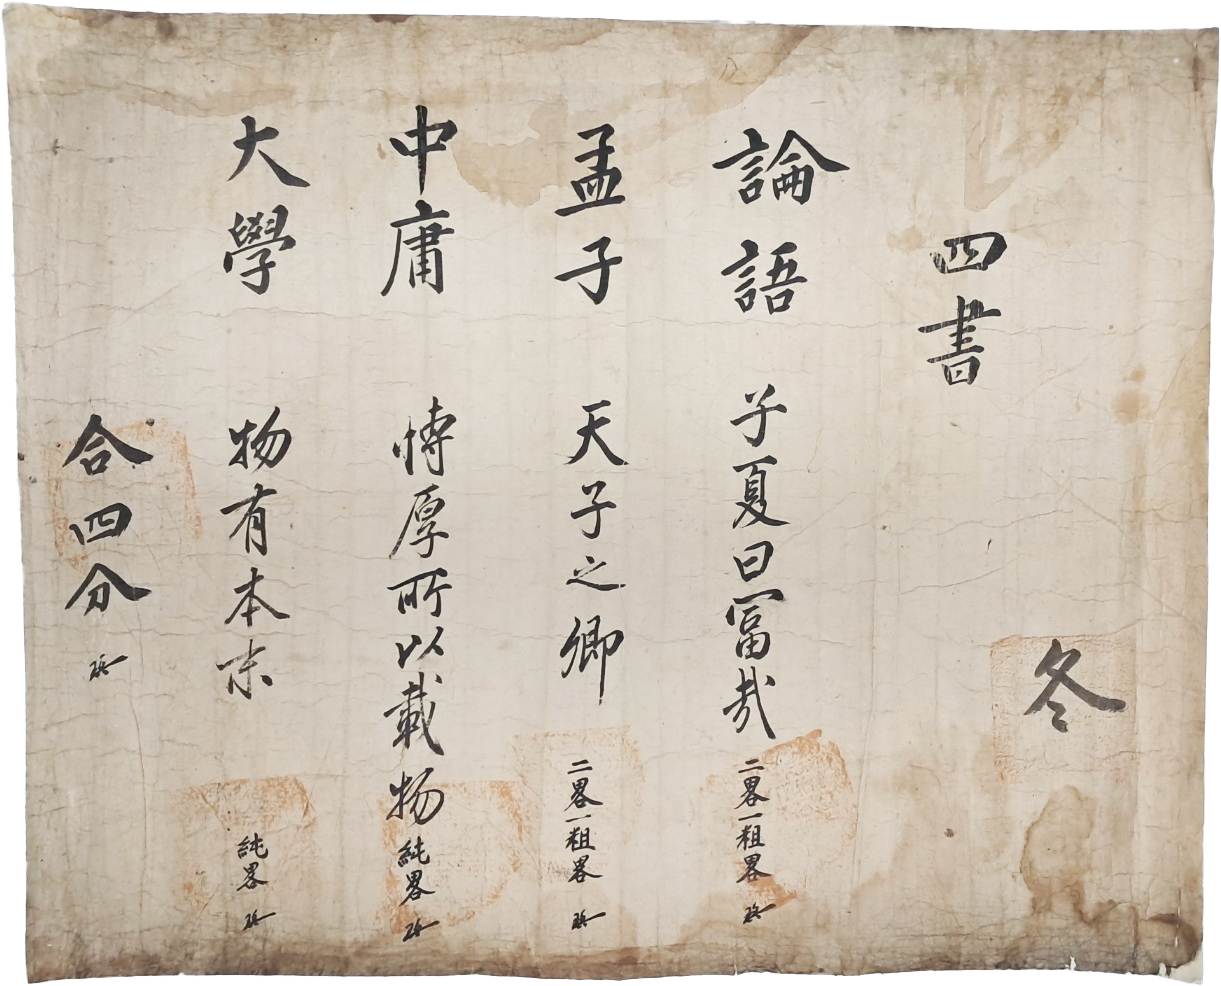 冬
四書
論語 子夏曰富哉 二畧一粗畧
孟子 天子之卿 二畧一粗畧
中庸 博厚所以載物 純畧
大學 物有本末 純畧
合四分